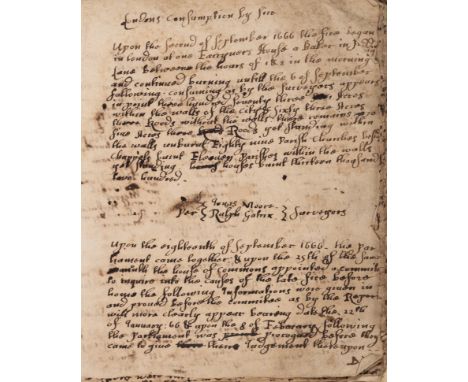 Londons Consumption by fire
Upon the second of September 1666 the fire began
in London at one Farryners House a Baker in
Lane Betweene the hours of 1 & 2 in the morning
and continued burning untill the 6 of September
following. consuming as by the Surveyors appears
in print three hundred seventy three Acres
within the walls of the Citty & sixty three Acres
three Roods without the walls there remains 70
five Acres three Roods yet standing within
the walls unburnt Eighty nine Parish Churches besides
Chappels burnt Eleaven Parishes within the walls
yet standing houses burnt thirteen thousand
two hundred.
Per { Jonas Moore
Ralph Gatrix } Surveyors
Upon the eighteenth of September 1666 the Par
liament came together & upon the 25th of the same
month the house of Commons appointed a committe
to inquire into the Causes of the late fire before
whome the following Informations were given in
and proved before the Committee as by the Report
will more clearly appear bearing date the 22th
of January: 66 & upon the 8 of February following
the Parliament was Prorogued before they
came to give there Judgement thereupon